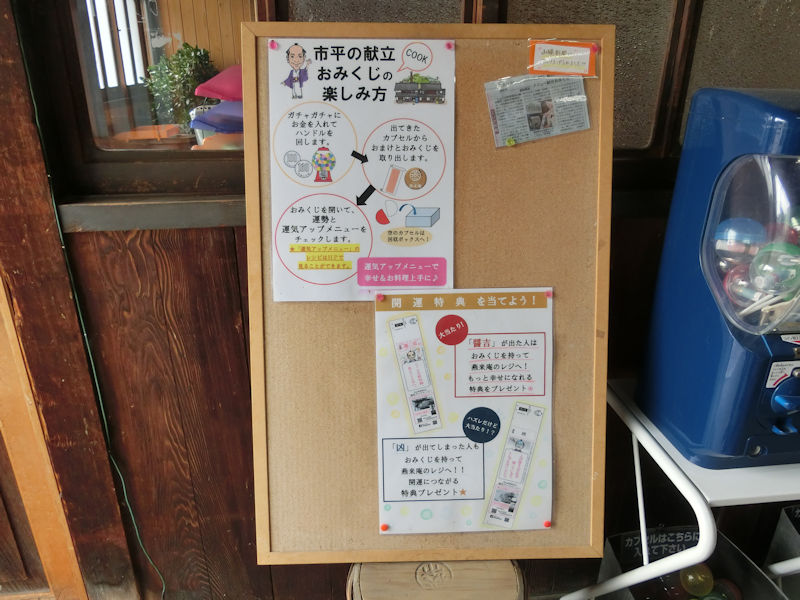 市平の献立
おみくじの
楽しみ方
COOK
ガチャガチャに
お金を入れて
ハンドルを
回します。
100
100
出てきた
カプセルから
おまけとおみくじを
取り出します。
おみくじを開いて、
運勢と
運気アップメニューを
チェックします。
★「運気アップメニュー」の
レシピはHPで
見ることができます。
空のカプセルは
回収ボックスへ!
運気アップメニューで
幸せ&お料理上手に♪
開運特典を当てよう!
大当たり!
「醤吉」が出た人は
おみくじを持って
燕来庵のレジへ!
もっと幸せになれる
特典をプレゼント
ハズレだけど
大当たり!?
「凶」が出てしまった人も
おみくじを持って
燕来庵のレジへ!!
開運につながる
特典プレゼント★
カプセルはこちらに
入れて下さい